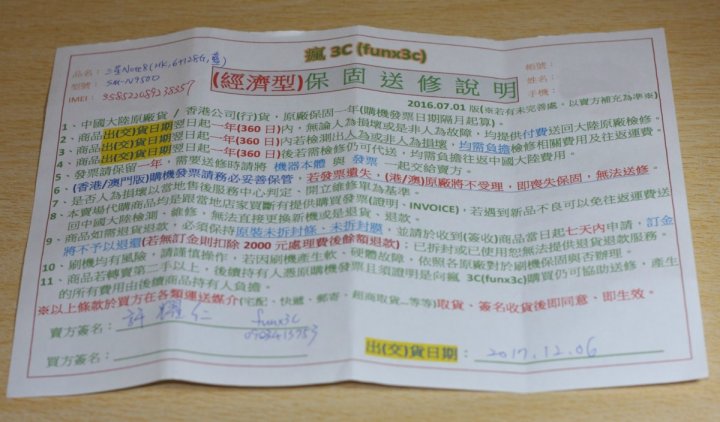 瘋 3C (funx3c)
(經濟型)保固送修說明
品名: 三星Note8(HK,6+128G,藍)
型號: SM-N9500
IMEI: 358522089238857
帳號:
姓名:
手機:
2016.07.01 版(※若有未完善處,以賣方補充為準※)
1、中國大陸原廠貨/香港公司(行)貨,原廠保固一年(購機發票日期隔月起算)。
2、商品出(交)貨日期翌日起一年(360 日)內,無論人為損壞或是非人為故障,均提供付費送回大陸原廠檢修。
3、商品出(交)貨日期翌日起一年(360 日)內若檢測出人為或非人為損壞,均需負擔檢修相關費用及往返運費。
4、商品出(交)貨日期翌日起一年(360 日)後若需檢修仍可代送,均需負擔往返中國大陸費用。
5、發票請保留一年,需要送修時請將 機器本體 與 發票 一起交給賣方。
6、(香港/澳門版)購機發票請務必妥善保管,若發票遺失,(港/澳)原廠將不受理,即喪失保固,無法送修。
7、是否人為損壞以當地售後服務中心判定、開立維修單為基準。
8、本賣場代購商品均是跟當地店家買斷有提供購買發票(證明、INVOICE),若遇到新品不良可以免往返運費送
回中國大陸檢測、維修,無法直接更換新機或是退貨、退款。
9、商品如需退貨退款,必須保持原裝未拆封條、未拆封膜,並請於收到(簽收)商品當日起七天內申請,訂金
將不予以退還(若無訂金則扣除 2000 元處理費後餘額退款);已拆封或已使用恕無法提供退貨退款服務。
10、刷機均有風險,請謹慎操作,若因刷機產生軟、硬體故障、依照各原廠對於刷機保固與否辦理。
11、商品若轉賣第二手以上,後續持有人憑原購機發票且須證明是向瘋 3C(funx3c)購買仍可協助送修,產生
的所有費用由後續商品持有人負擔。
※以上條款於買方在各類運送媒介(宅配、快遞、郵寄、超商取貨…等等)取貨、簽名收貨後即同意、即生效。
賣方簽名: 許耀仁 funx3c
買方簽名:
出(交)貨日期: 2017.12.06